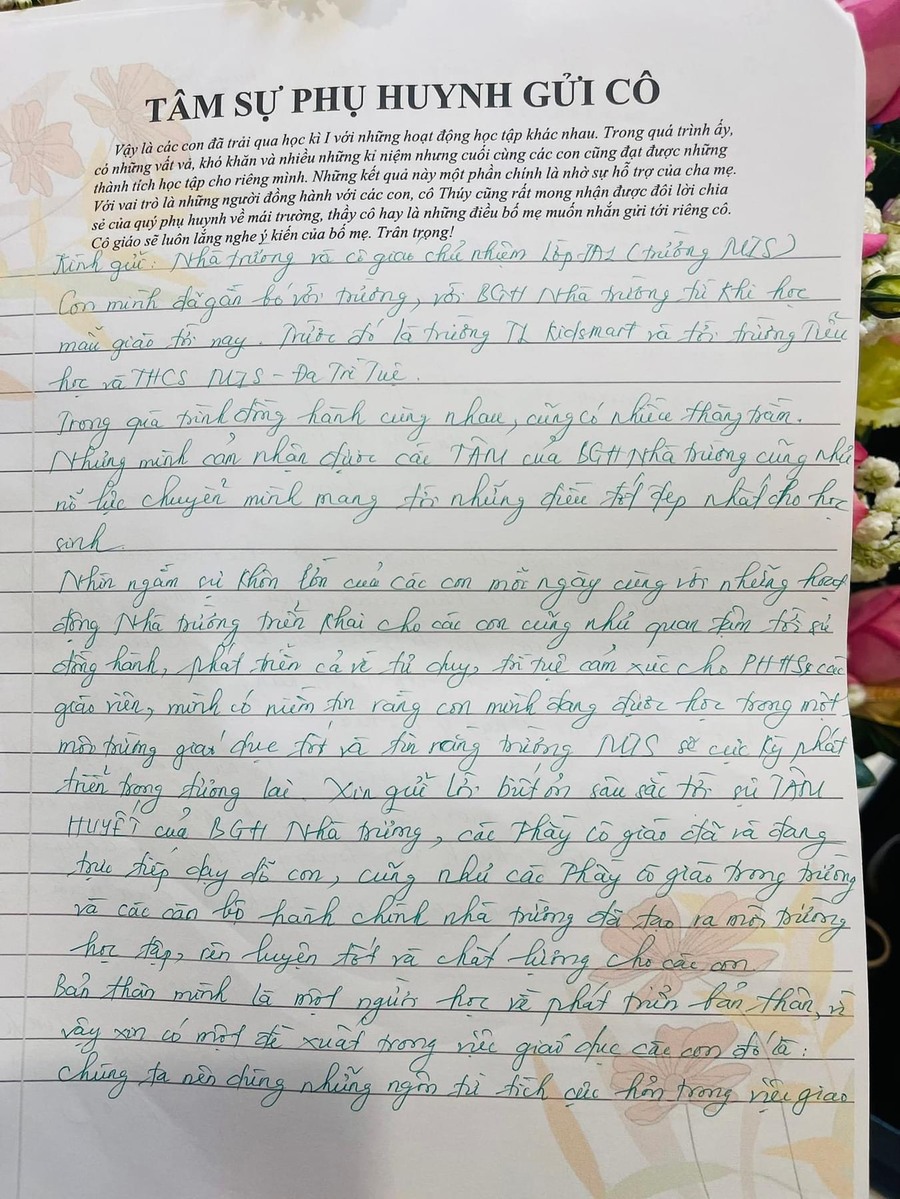 TÂM SỰ PHỤ HUYNH GỬI CÔ
Vậy là các con đã trải qua học kì I với những hoạt động học tập khác nhau. Trong quá trình ấy,
có những vất vả, khó khăn và nhiều những kỉ niệm nhưng cuối cùng các con cũng đạt được những
thành tích học tập cho riêng mình. Những kết quả này một phần chính là nhờ sự hỗ trợ của cha mẹ.
Với vai trò là những người đồng hành với các con, cô Thúy cũng rất mong nhận được đôi lời chia
sẻ của quý phụ huynh về mái trường, thầy cô hay là những điều bố mẹ muốn nhắn gửi tới riêng cô.
Cô giáo sẽ luôn lắng nghe ý kiến của bố mẹ. Trân trọng!
Kính gửi: Nhà trường và cô giáo chủ nhiệm lớp (trường MIS)
Con mình đã gắn bó với trường, với BGH Nhà trường từ khi học
mẫu giáo tới nay. Trước đó là trường TL Kidsmart và tới trường Tiểu
học và THCS MIS - Đa Trí Tuệ.
Trong quá trình đồng hành cùng nhau, cũng có nhiều thăng trầm.
Nhưng mình cảm nhận được cái TÂM của BGH Nhà trường cũng như
nỗ lực chuyển mình mang tới những điều tốt đẹp nhất cho học
sinh.
Nhìn ngắm sự khôn lớn của các con mỗi ngày cùng với những hoạt
động Nhà trường triển khai cho các con cũng như quan tâm tới sự
đồng hành, phát triển cả về tư duy, trí tuệ cảm xúc cho PHHS & các
giáo viên, mình có niềm tin rằng con mình đang được học trong một
môi trường giáo dục tốt và tin rằng trường MIS sẽ cực kỳ phát
triển trong tương lai. Xin gửi lời biết ơn sâu sắc tới sự TÂM
HUYẾT của BGH Nhà trường, các Thầy cô giáo đã và đang
trực tiếp dạy dỗ con, cũng như các Thầy cô giáo trong trường
và các cán bộ hành chính nhà trường đã tạo ra môi trường
học tập, rèn luyện tốt và chất lượng cho các con.
Bản thân mình là một người học về phát triển bản thân, vì
vậy xin có một đề xuất trong việc giáo dục các con đó là:
Chúng ta nên dùng những ngôn từ tích cực hơn trong việc giao